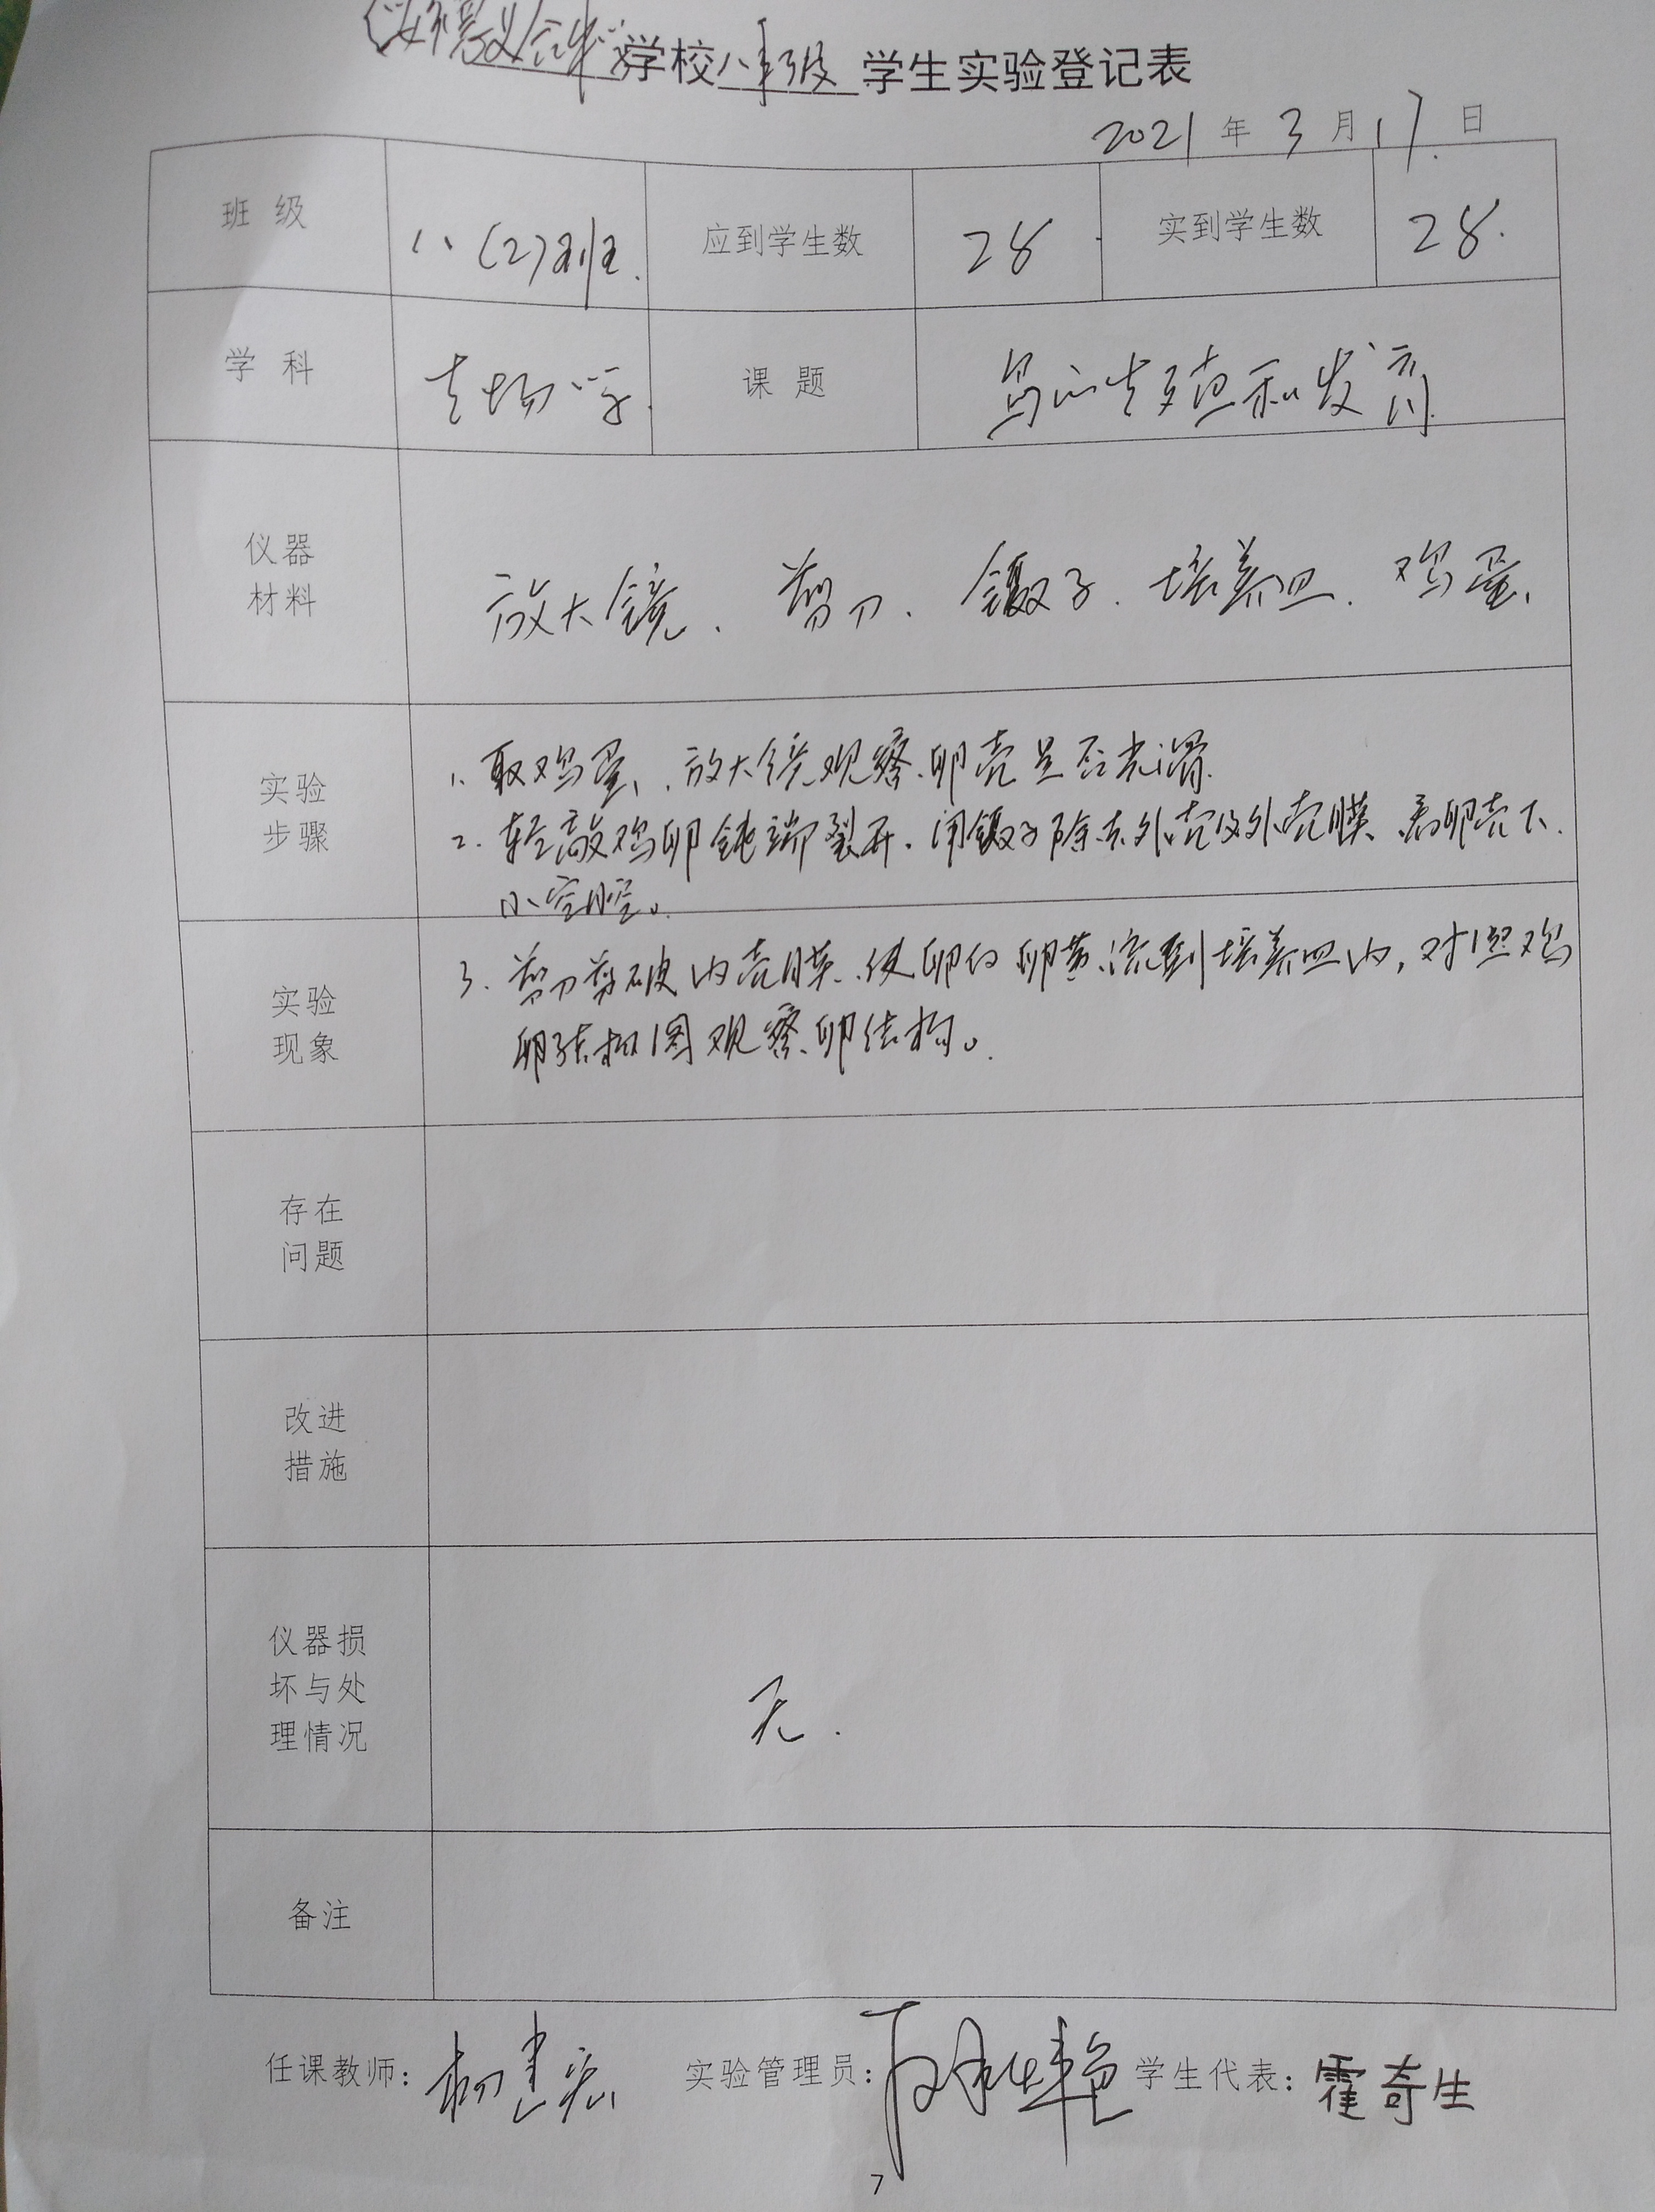 学校 八年级 学生实验登记表
2021 年 3 月 17 日
班级 八(2)班. 应到学生数 28 实到学生数 28.
学科 生物学. 课题 鸟的生殖和发育
仪器
材料
放大镜、剪刀、镊子、培养皿、鸡蛋、
实验
步骤
1. 取鸡蛋、放大镜观察卵壳是否光滑.
2. 轻敲鸡卵钝端裂开. 用镊子除去外壳及外壳膜、看卵壳下
小空腔。
实验
现象
3. 剪刀剪破内壳膜、使卵白卵黄流到培养皿内, 对照鸡
卵结构图观察卵结构。
存在
问题
改进
措施
仪器损
坏与处
理情况
无.
备注
任课教师: 实验管理员: 学生代表: 霍奇生
7